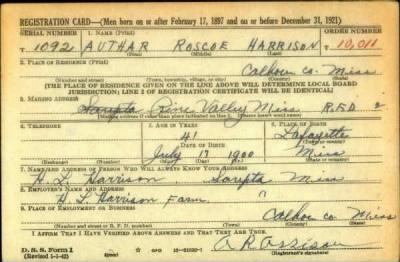 REGISTRATION CARD—(Men born on or after February 17, 1897 and on or before December 31, 1921)
SERIAL NUMBER 1. NAME (Print) ORDER NUMBER
T 1092 AUTHAR ROSCOE HARRISON T 10,011
2. PLACE OF RESIDENCE (Print)
Calhoun Co. Miss
(Number and street) (Town, township, village, or city) (County) (State)
[THE PLACE OF RESIDENCE GIVEN ON THE LINE ABOVE WILL DETERMINE LOCAL BOARD
JURISDICTION; LINE 2 OF REGISTRATION CERTIFICATE WILL BE IDENTICAL]
3. MAILING ADDRESS
Sarepta Pine Valley Miss R.F.D 2
[Mailing address if other than place indicated on line 2. If same insert word same]
4. TELEPHONE 5. AGE IN YEARS 6. PLACE OF BIRTH
41 Lafayette
DATE OF BIRTH (Town or county)
July 17 1900 Miss
(Exchange) (Number) (Mo.) (Day) (Yr.) (State or country)
7. NAME AND ADDRESS OF PERSON WHO WILL ALWAYS KNOW YOUR ADDRESS
H. L. Harrison, Sarepta Miss
8. EMPLOYER'S NAME AND ADDRESS
H. L. Harrison Farm "
9. PLACE OF EMPLOYMENT OR BUSINESS
Calhoun Co Miss
(Number and street or R. F. D. number) (Town) (County) (State)
I AFFIRM THAT I HAVE VERIFIED ABOVE ANSWERS AND THAT THEY ARE TRUE.
D. S. S. Form 1
(Revised 1-1-42) GPO
(Registrant's signature)